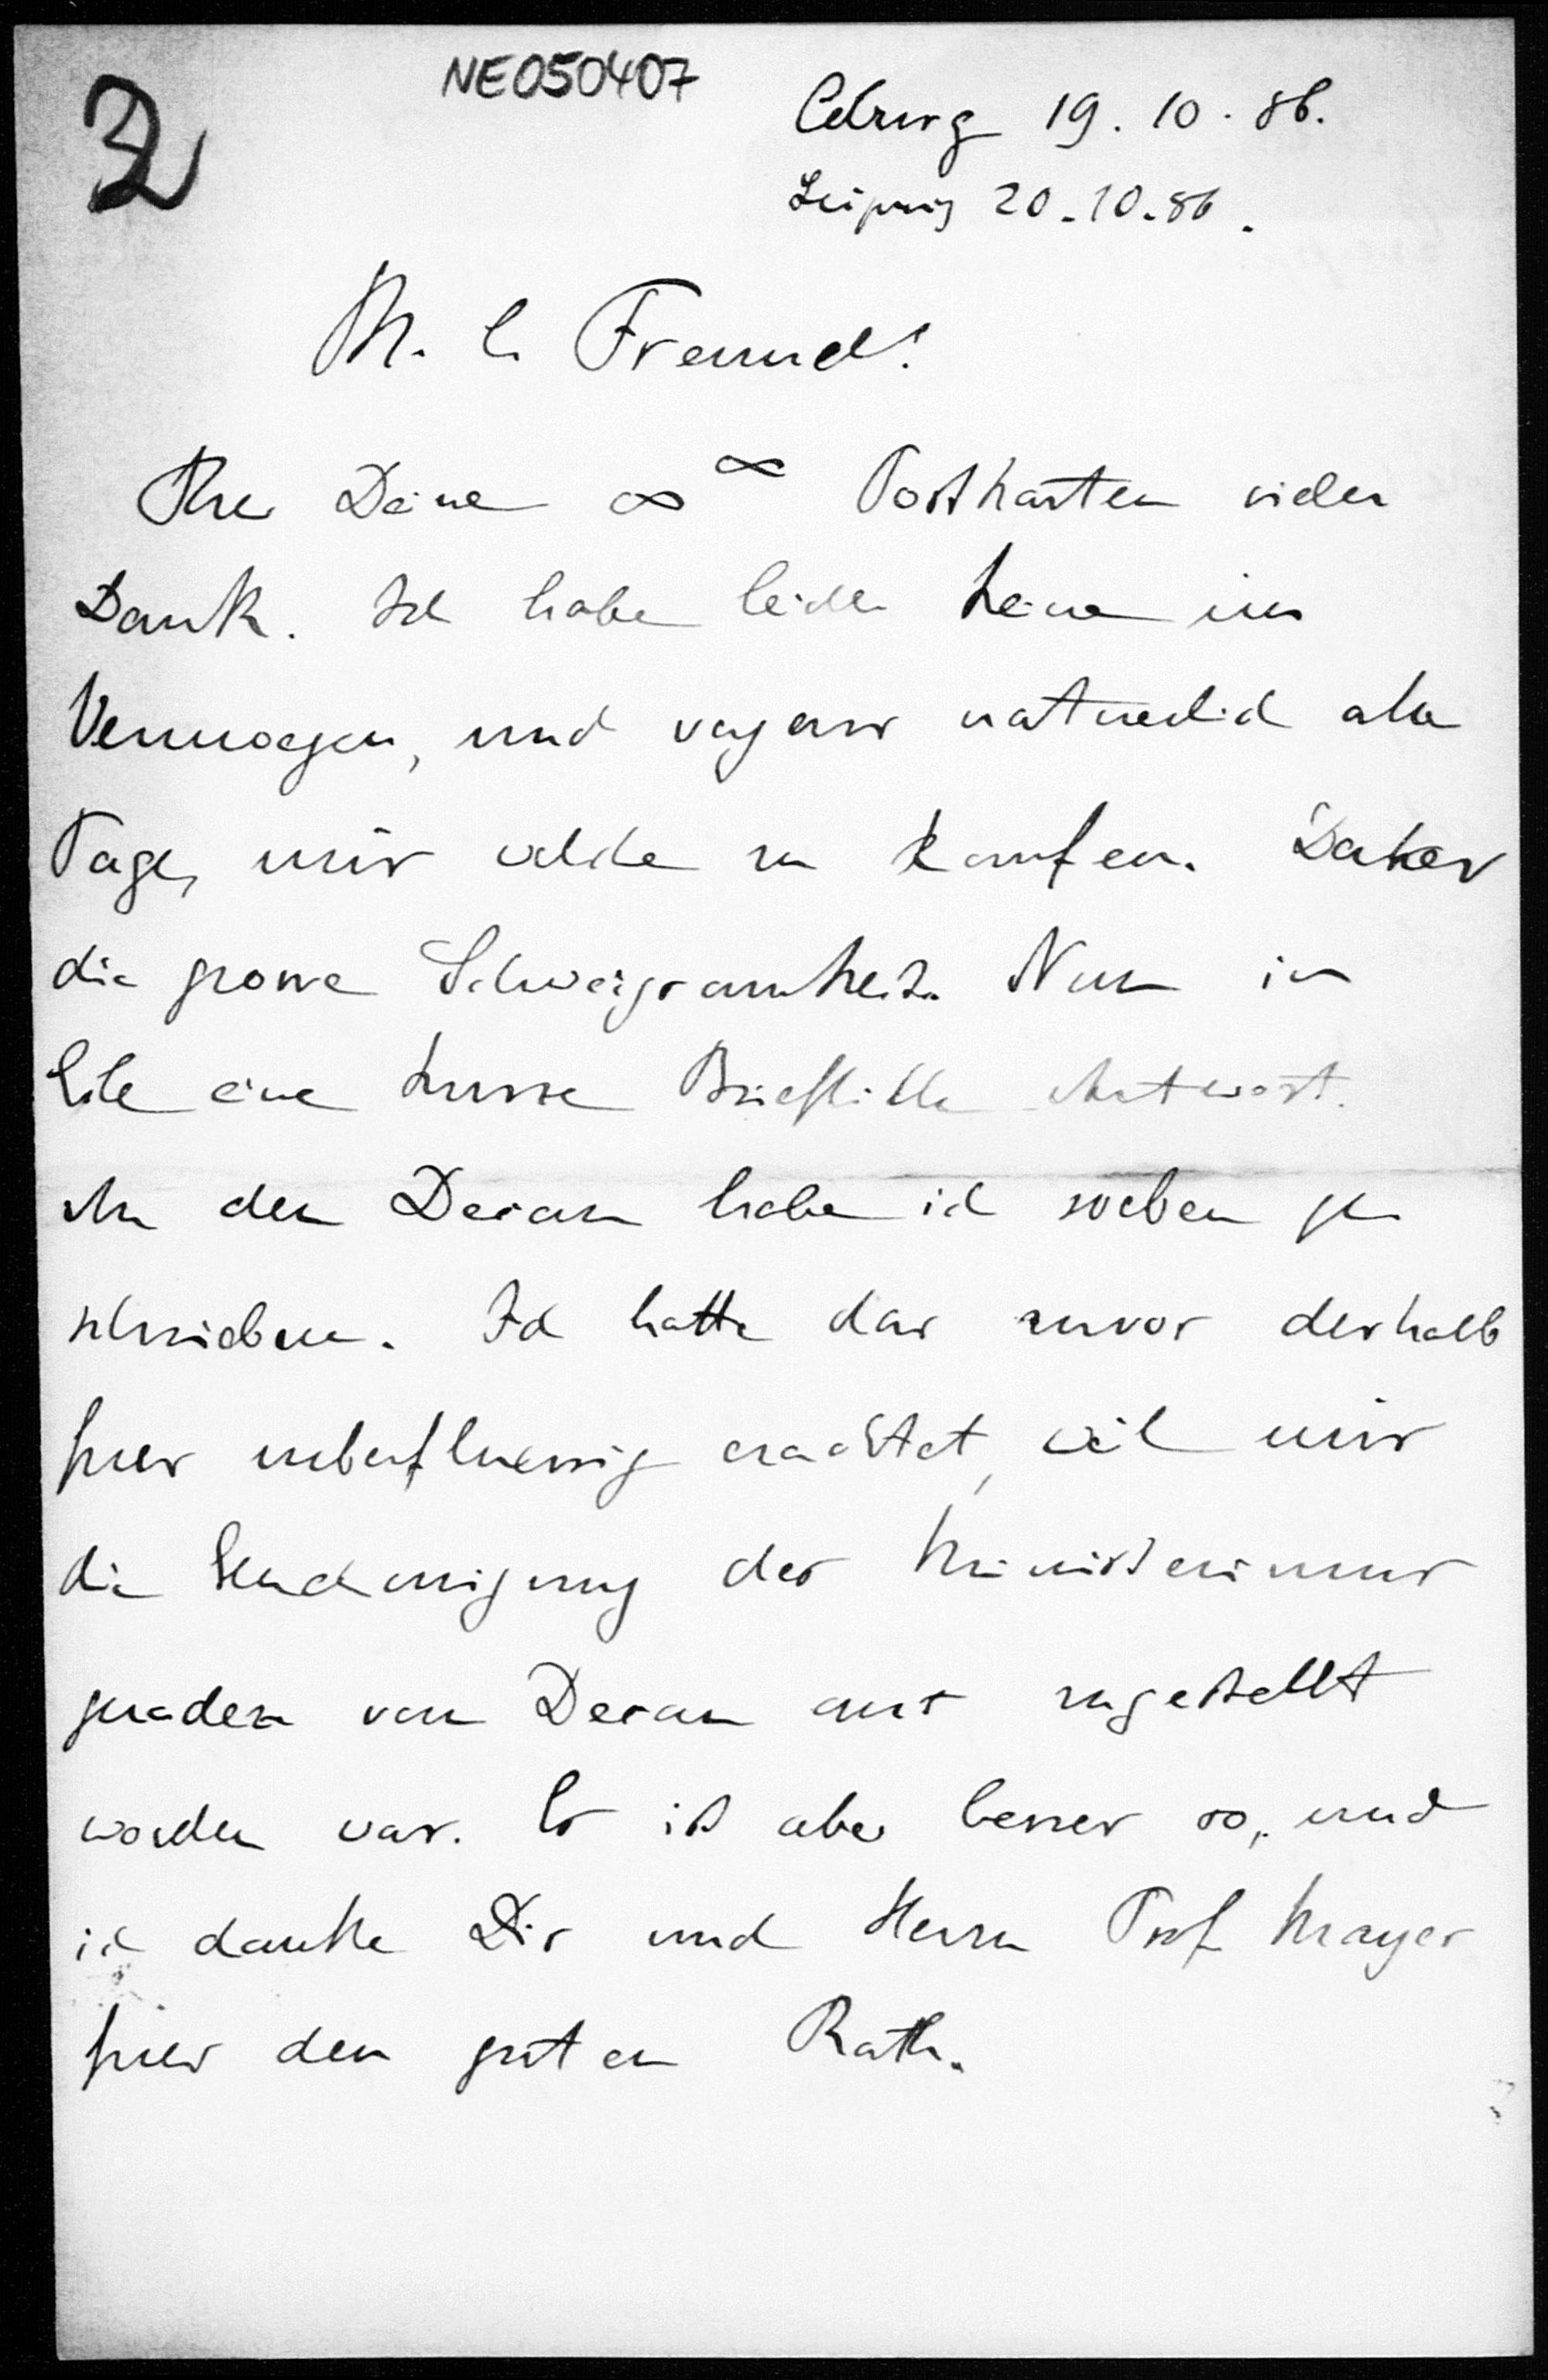 NE050407
2
Coburg 19.10.86.
Leipzig 20.10.86.
M. l. Freund!
Fuer Deine ∞ ∞ Postkarten vielen
Dank. Ich habe leider keine im
Vermoegen, und vergesse natuerlich alle
Tage, mir welche zu kaufen. Daher
die grosse Schweigsamkeit. Nun in
Eile eine kurze Briefliche Antwort.
An den Decan habe ich soeben ge
schrieben. Ich hatte das zuvor deshalb
fuer ueberfluessig erachtet, weil mir
die Genehmigung des Ministeriums
geradezu vom Decan aus zugestellt
worden war. Es ist aber besser so, und
ich danke Dir und Herrn Prof Mayer
fuer den guten Rath.